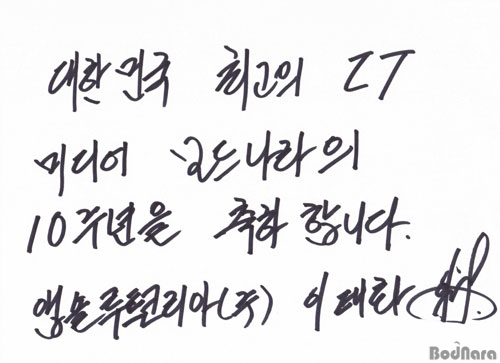 대한민국 최고의 IT
미디어 보드나라의
10주년을 축하 합니다.
앱솔루트코리아(주) 이태화
BodNara